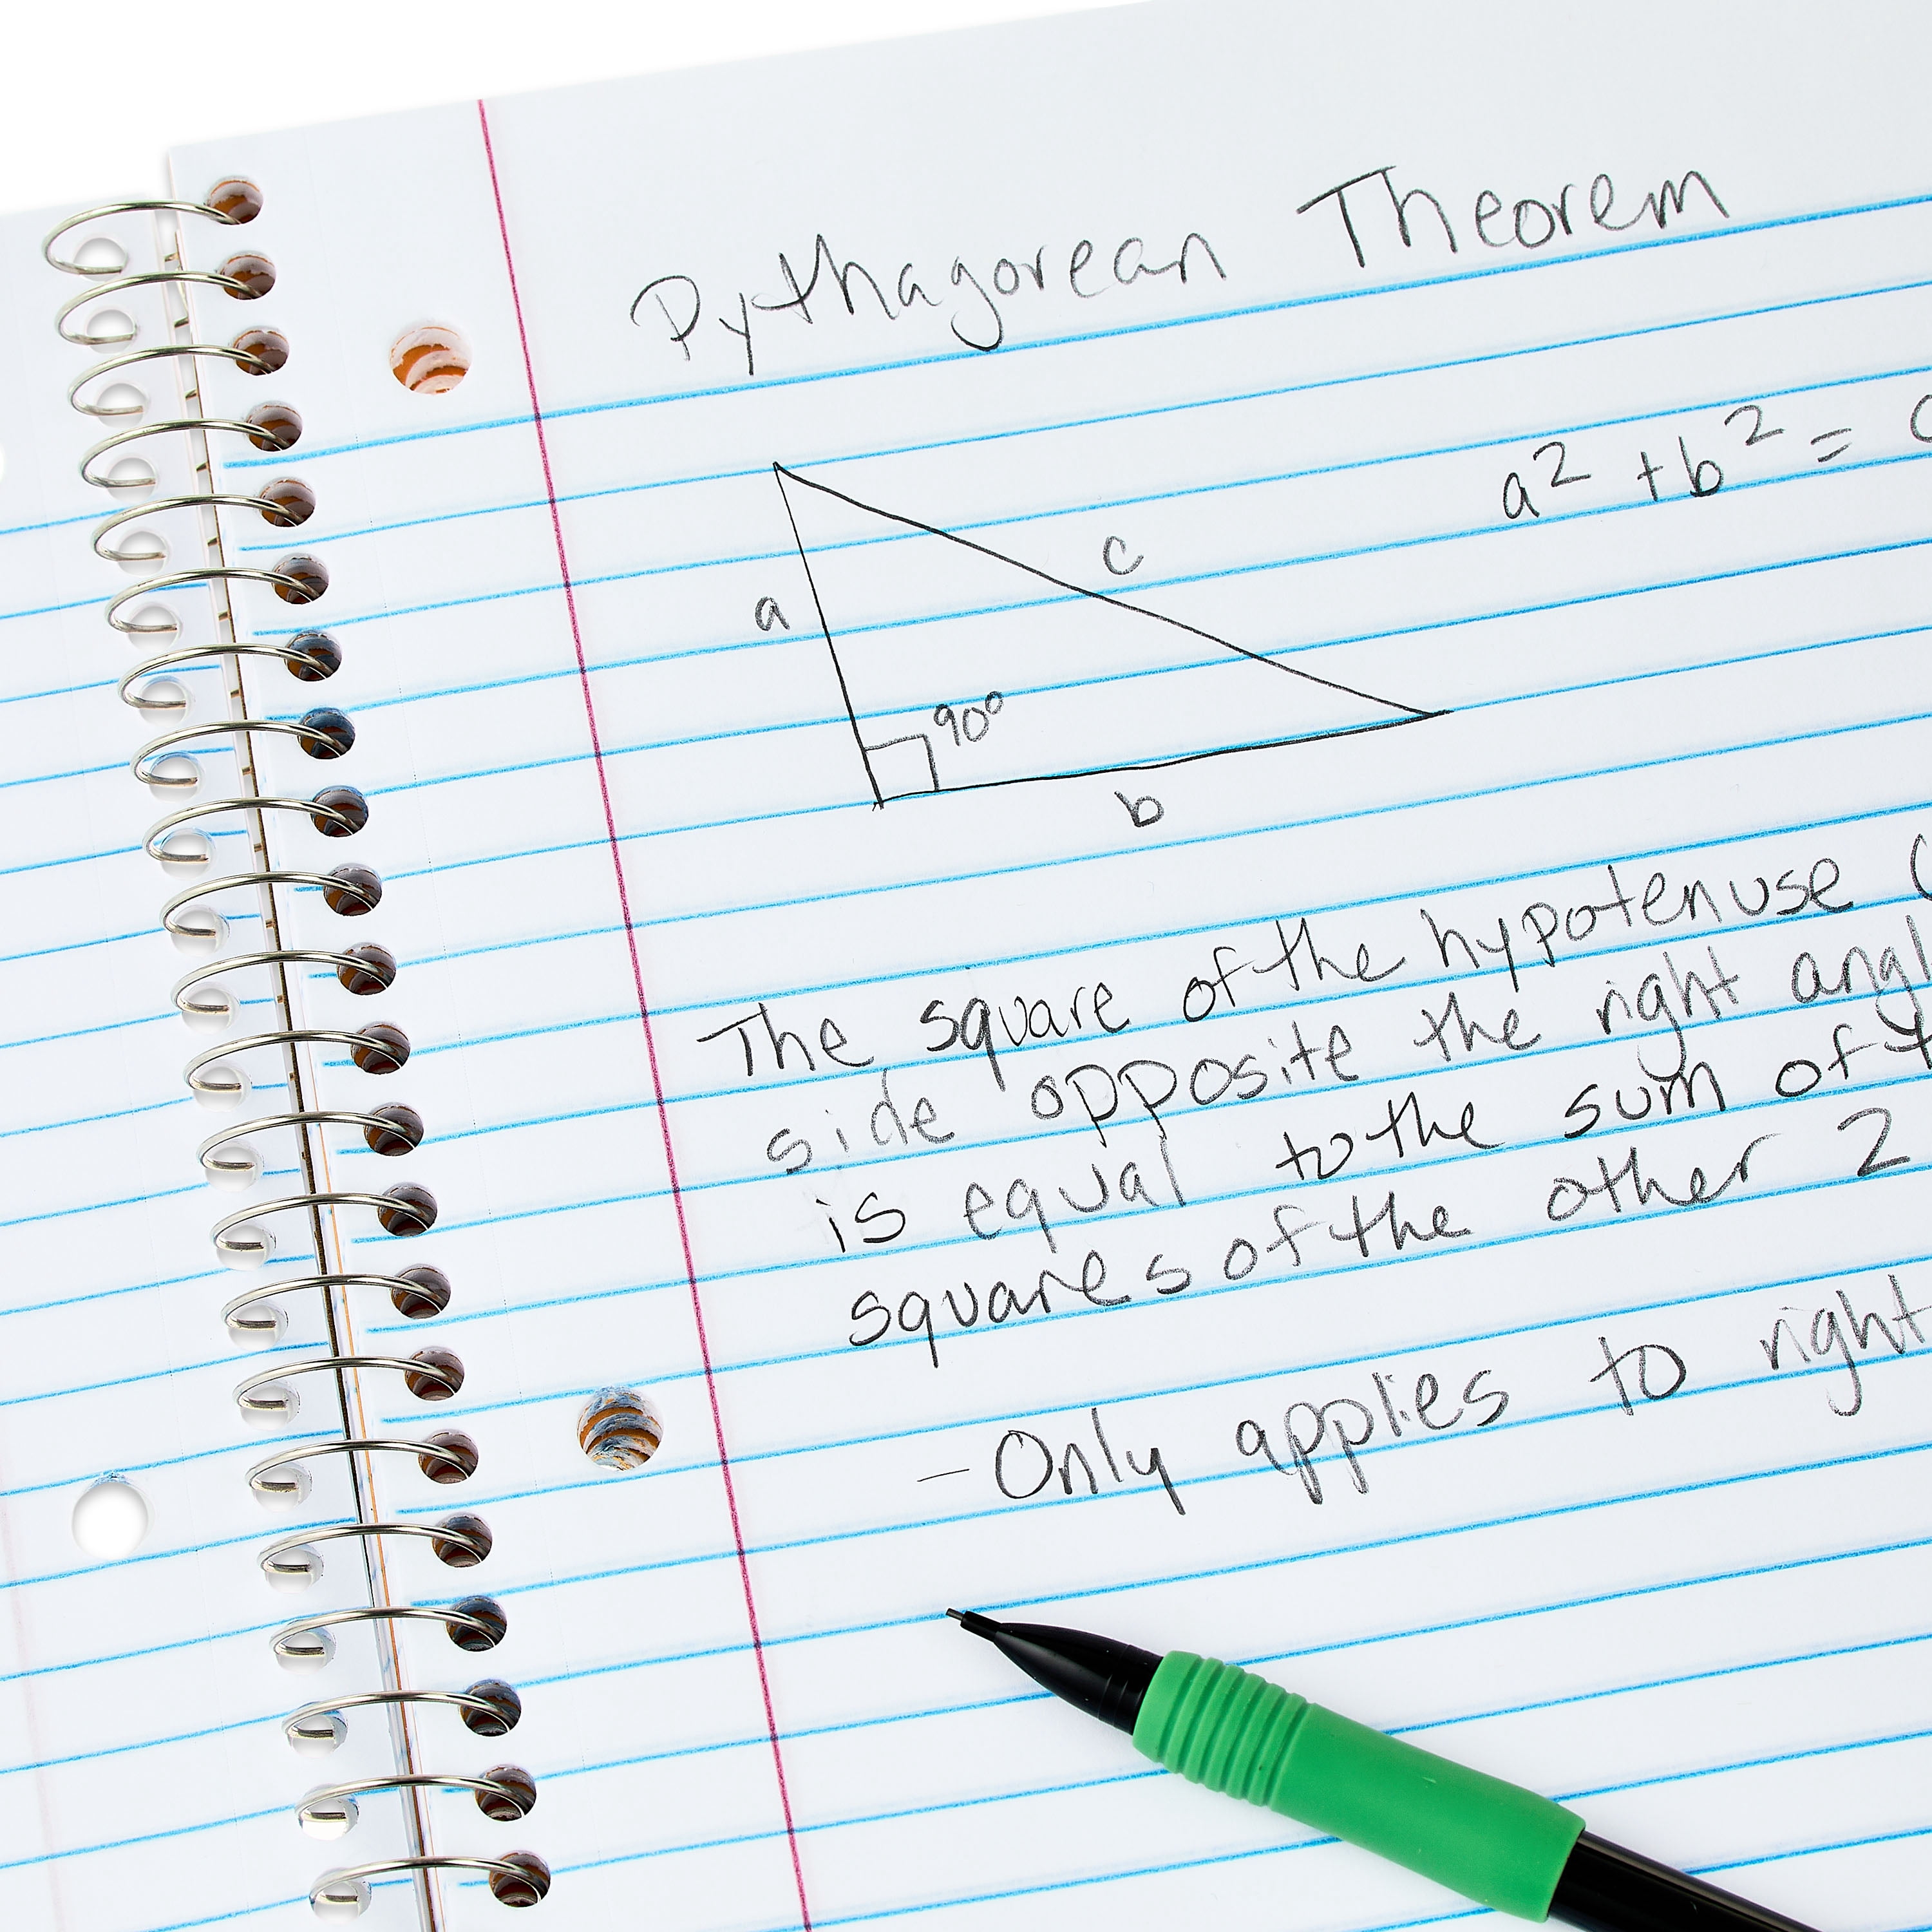 Pythagorean Theorem
a² + b² =
c
a
90°
b
The square of the hypotenuse (
side opposite the right angl
is equal to the sum of t
squares of the other 2
- Only applies to right